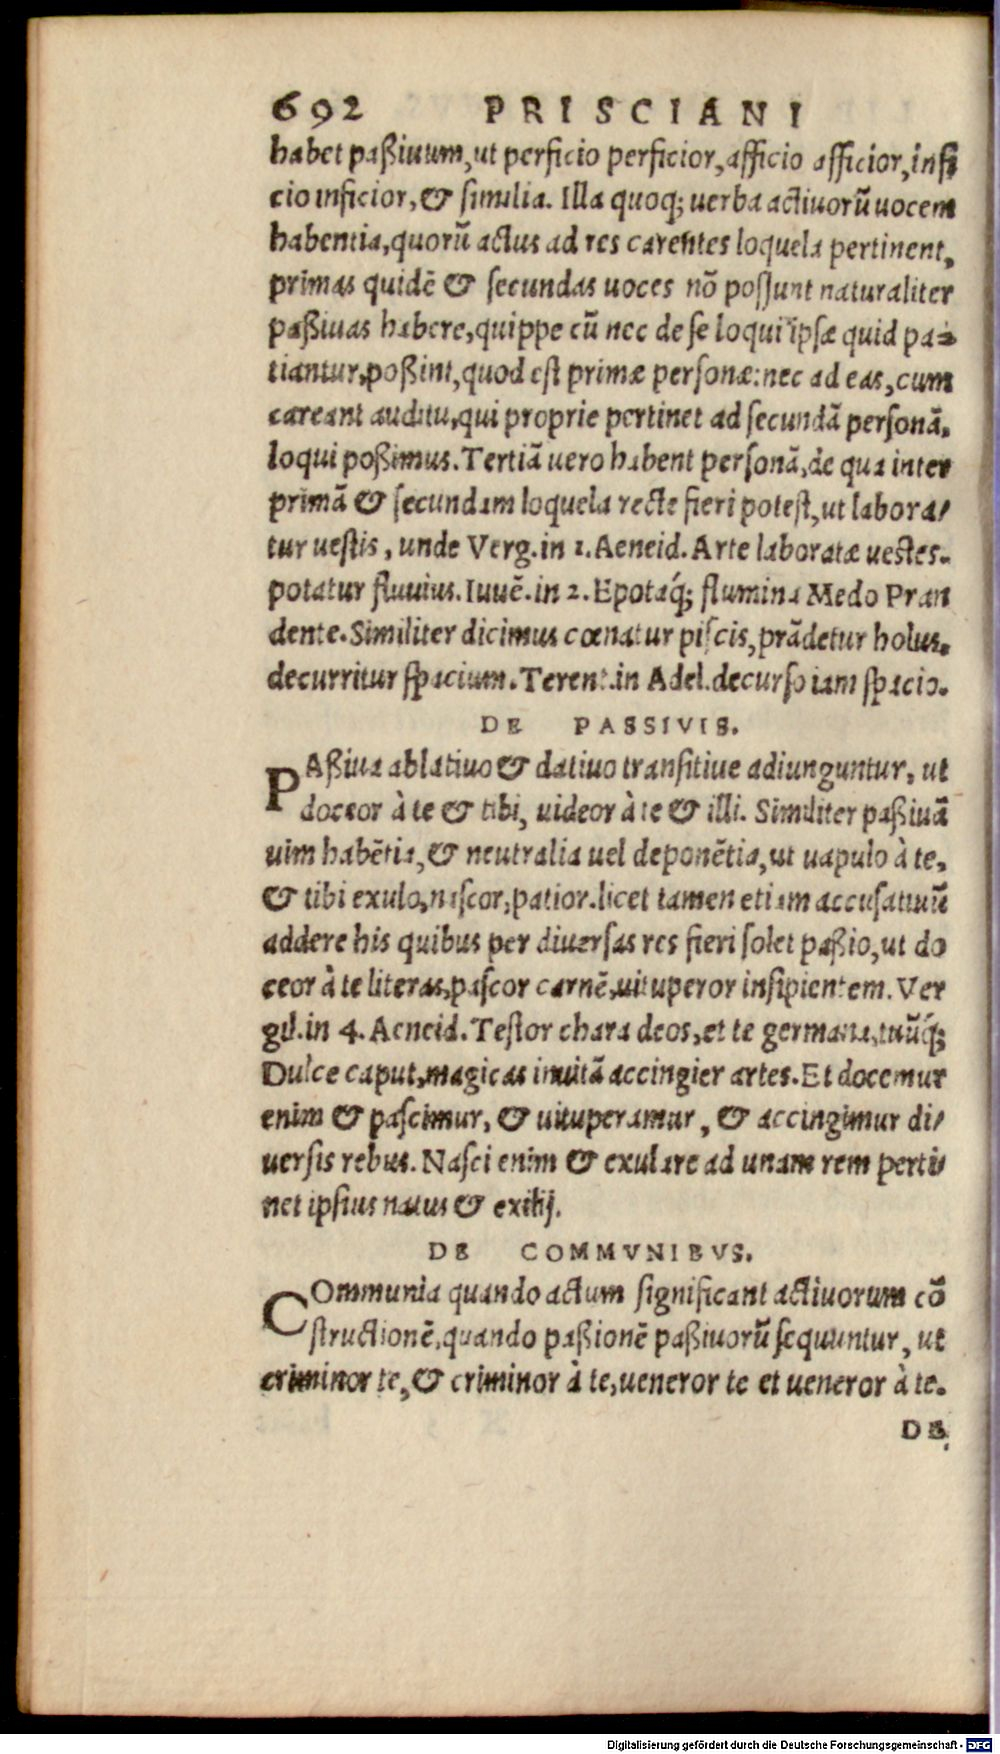 692 PRISCIANI
habet paßiuum, ut perficio perficior, afficio afficior, infi
cio inficior, & similia. Illa quoq; uerba actiuorũ uocem
habentia, quorũ actus ad res carentes loquela pertinent,
primas quidẽ & secundas uoces nõ possunt naturaliter
paßiuas habere, quippe cũ nec de se loqui ipsæ quid pa-
tiantur, poßint, quod est primæ personæ: nec ad eas, cum
careant auditu, qui proprie pertinet ad secundã personã.
loqui poßimus. Tertiã uero habent personã, de qua inter
primã & secundam loquela recte fieri potest, ut labora/
tur uestis, unde Verg. in 1. Aeneid. Arte laboratæ uestes.
potatur fluuius. Iuuẽ. in 2. Epotaq́; flumina Medo Pran
dente. Similiter dicimus cœnatur piscis, prãdetur holus.
decurritur spacium. Terent. in Adel. decurso iam spacio.
DE PASSIVIS.
PAßiua ablatiuo & datiuo transitiue adiunguntur, ut
doceor à te & tibi, uideor à te & illi. Similiter paßiuã
uim habẽtia, & neutralia uel deponẽtia, ut uapulo à te,
& tibi exulo, nascor, patior. licet tamen etiam accusatiuũ
addere his quibus per diuersas res fieri solet paßio, ut do
ceor à te literas, pascor carnẽ, uituperor insipientem. Ver
gil. in 4. Aeneid. Testor chara deos, et te germana, tuũq́;
Dulce caput, magicas inuitã accingier artes. Et docemur
enim & pascimur, & uituperamur, & accingimur di/
uersis rebus. Nasci enim & exulare ad unam rem perti
net ipsius natus & exilij.
DE COMMVNIBVS.
COmmunia quando actum significant actiuorum cõ
structionẽ, quando paßionẽ paßiuorũ sequuntur, ut
criminor te, & criminor à te, ueneror te et ueneror à te.
DE
Digitalisierung gefördert durch die Deutsche Forschungsgemeinschaft - DFG